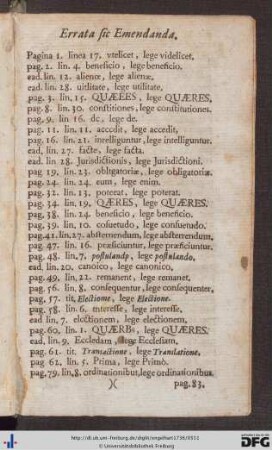 Errata sic Emendanda.
Pagina 1. linea 17. vtelicet, lege videlicet,
pag. 2. lin. 4. beneficio, lege beneficio.
ead. lin. 12. alienœ, lege alienæ,
ead. lin. 28. uitlitate, lege utilitate,
pag. 3. lin, 15. QUÆEES, lege QUÆRES,
pag. 8. lin. 30. constitiones, lege constitutiones.
pag. 9. lin 16. dc, lege de.
pag. 11. lin. 11. acccdit, lege accedit,
pag. 16. lin. 21. intelliguntur, lege intelliguntur.
ead, lin. 27. facte, lege facta.
ead. lin 28. Jurisdictionis, lege Jurisdictioni.
pag 19. lin. 23. obligatoriœ, lege obligatoriæ.
pag. 24. lin. 24. eum, lege enim.
pag. 32. lin. 23. poterat, lege poterat.
pag. 34. lin. 19. QÆRES, lege QUÆRES.
pag. 38. lin. 24. beneficio, lege beneficio.
pag. 39. lin. 10. cosuetudo, lege consuetudo.
pag. 41. lin. 27. abstemendum, lege abstertendum,
pag 47. lin. 16. præsiciuntur, lege præficiuntur.
pag. 48. lin, 7. postulandp, lege postulando.
ead, lin, 20. canoico, lege canonico,
pag. 49, lin, 22. remanent, lege remanet.
pag. 56, lin, 8. consequentur, lege consequenter,
pag, 57. tit, Electiome, lege Electione.
pag. 58. lin. 6. intetesse, lege interesse,
ead lin, 7. elcctionem, lege electionem,
pag. 60, lin. 1. QUÆRB, lege QUÆRES.
ead, lin, 9, Eccledam, lege Ecclesiam,
pag. 61. tit. Transactione, lege Translatione,
pag 62. lin. 5. Prima, lege Primò.
pag. 79. lin, 8, ordinationibut, lege ordinationibus
)( pag. 83.
http://dl.ub.uni-freiburg.de/diglit/engelhart1736/0532
UNI
FREIBURG
gefördert durch die
DFG